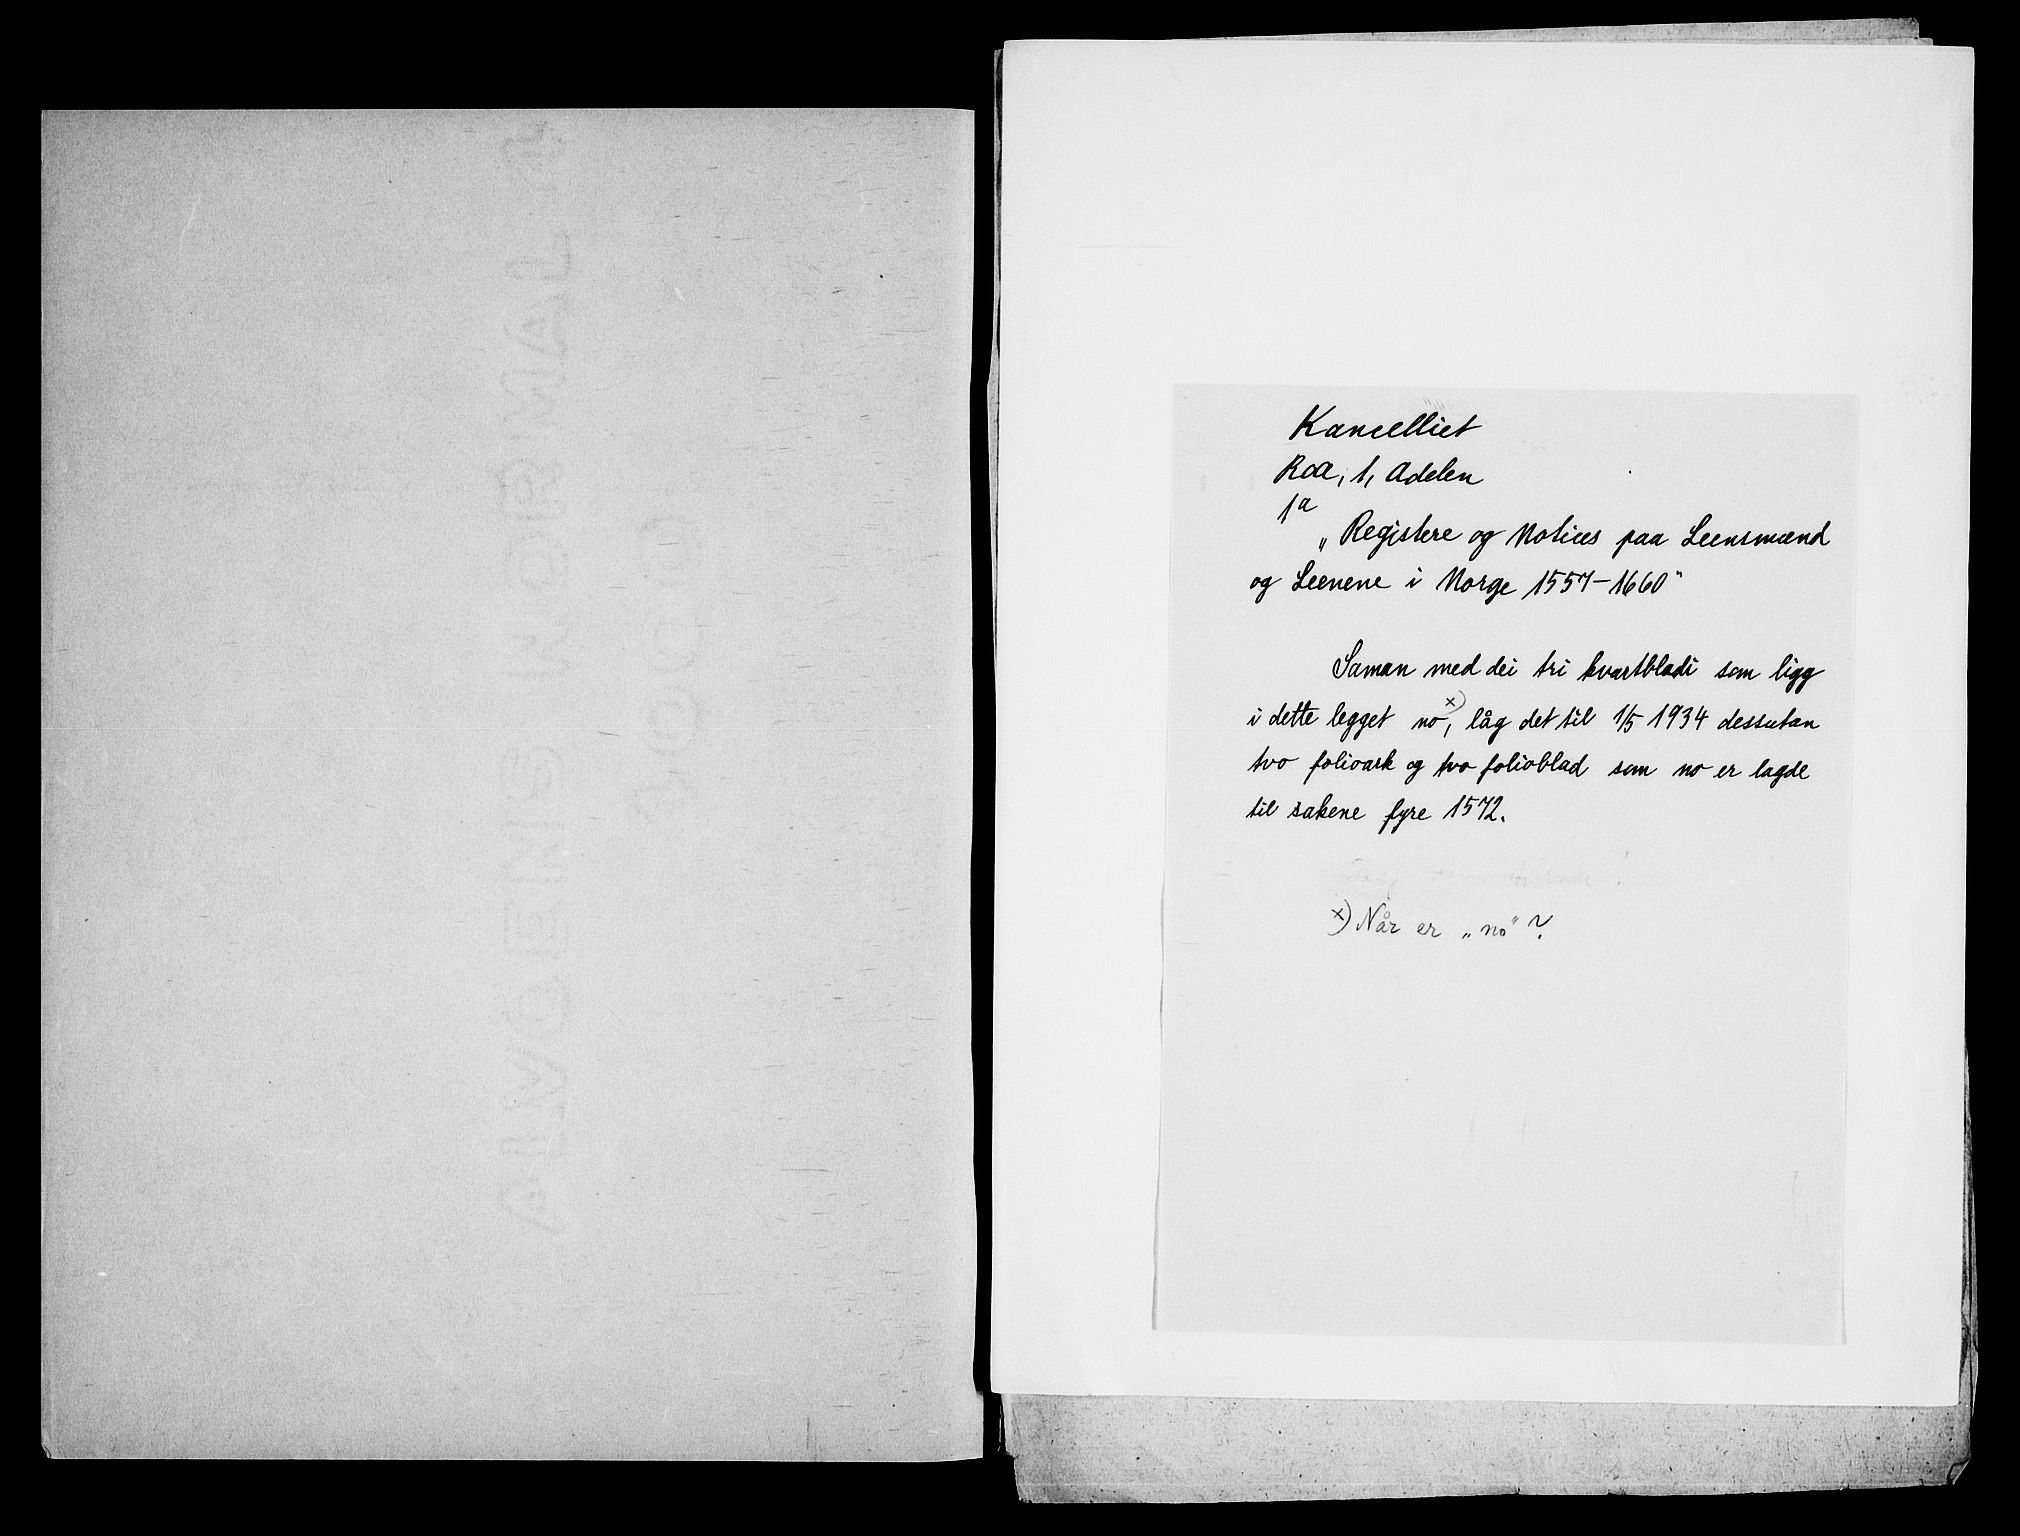 Kancelliet
Roa, 1, Adelen
1a
„Registere og Notices paa Leensmænd
og Leenene i Norge 1557–1660"
Saman med dei tri kvartbladi som ligg
i dette legget no x), låg det til 1/5 1934 dessutan
tvo folioark og tvo folioblad som no er lagde
til sakene fyre 1572.
x) Når er „no"?